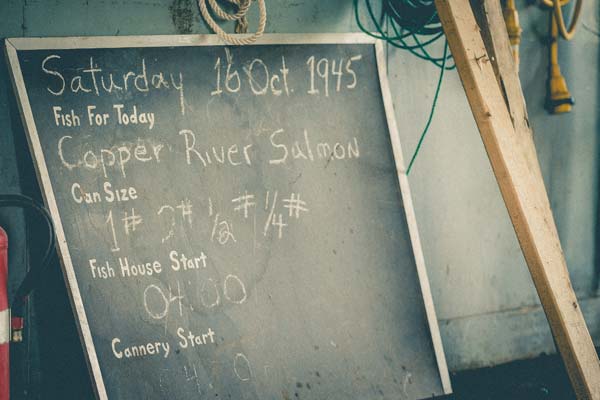 Saturday 16 Oct. 1945
Fish For Today
Copper River Salmon
Can Size
1# 2# ½# ¼#
Fish House Start
04:00
Cannery Start